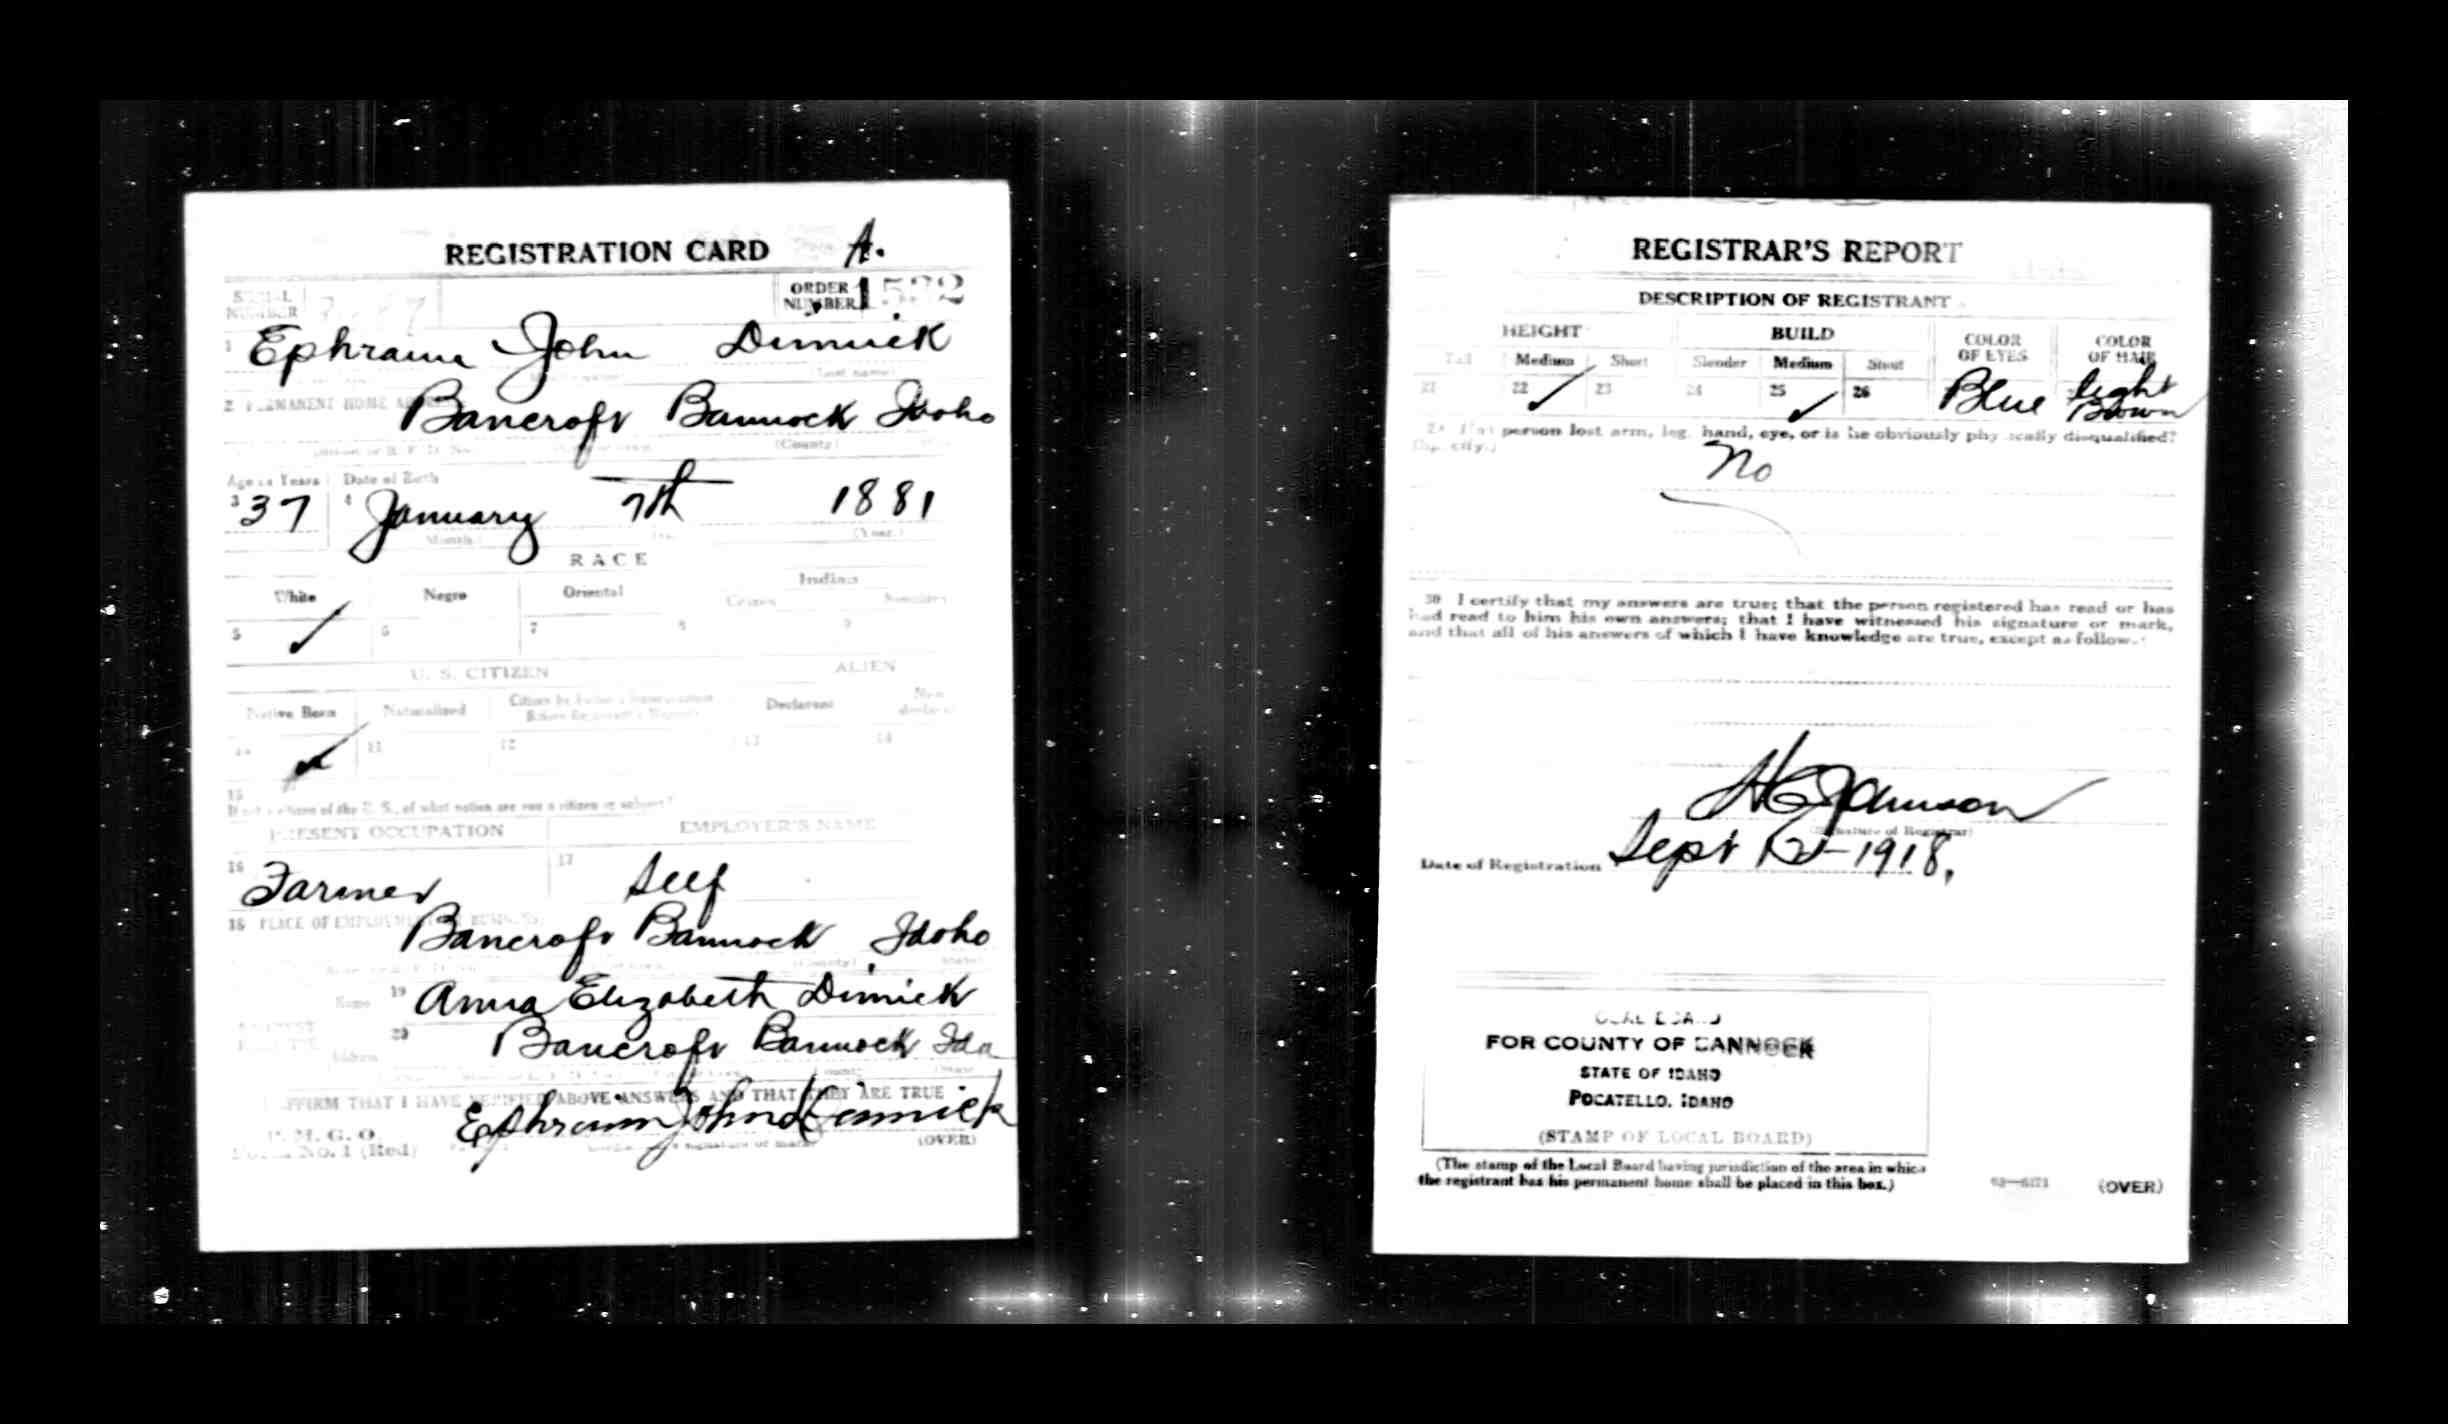 REGISTRATION CARD A.
SERIAL NUMBER
ORDER NUMBER 1532
1 Ephraim John Dimick
2 PERMANENT HOME ADDRESS
Bancroft Bannock Idaho
(County)
Age in Years Date of Birth
3 37 4 January 7th 1881
(Month.) (Year.)
RACE
White Negro Oriental Indian
Citizen Noncitizen
5 ✓ 6 7 8 9
U. S. CITIZEN ALIEN
Native Born Naturalized Declarant
10 ✓ 11 12 13 14
15
If not a citizen of the U. S., of what nation are you a citizen or subject?
PRESENT OCCUPATION EMPLOYER'S NAME
16 Farmer 17 Self
18 PLACE OF EMPLOYMENT OR BUSINESS:
Bancroft Bannock Idaho
(County) (State)
Name 19 Anna Elizabeth Dimick
NEAREST RELATIVE
Address 20 Bancroft Bannock Ida
I AFFIRM THAT I HAVE VERIFIED ABOVE ANSWERS AND THAT THEY ARE TRUE
P. M. G. O.
Form No. 1 (Red)
Ephraim John Dimick
(OVER)
REGISTRAR'S REPORT
DESCRIPTION OF REGISTRANT
HEIGHT BUILD COLOR OF EYES COLOR OF HAIR
Tall Medium Short Slender Medium Stout
21 22 ✓ 23 24 25 ✓ 26 Blue light Brown
29 Has person lost arm, leg, hand, eye, or is he obviously physically disqualified?
(Specify.)
No
30 I certify that my answers are true; that the person registered has read or has
had read to him his own answers; that I have witnessed his signature or mark,
and that all of his answers of which I have knowledge are true, except as follows:
(Signature of Registrar)
Date of Registration Sept 12-1918.
LOCAL BOARD
FOR COUNTY OF BANNOCK
STATE OF IDAHO
POCATELLO, IDAHO
(STAMP OF LOCAL BOARD)
(The stamp of the Local Board having jurisdiction of the area in which
the registrant has his permanent home shall be placed in this box.)
(OVER)